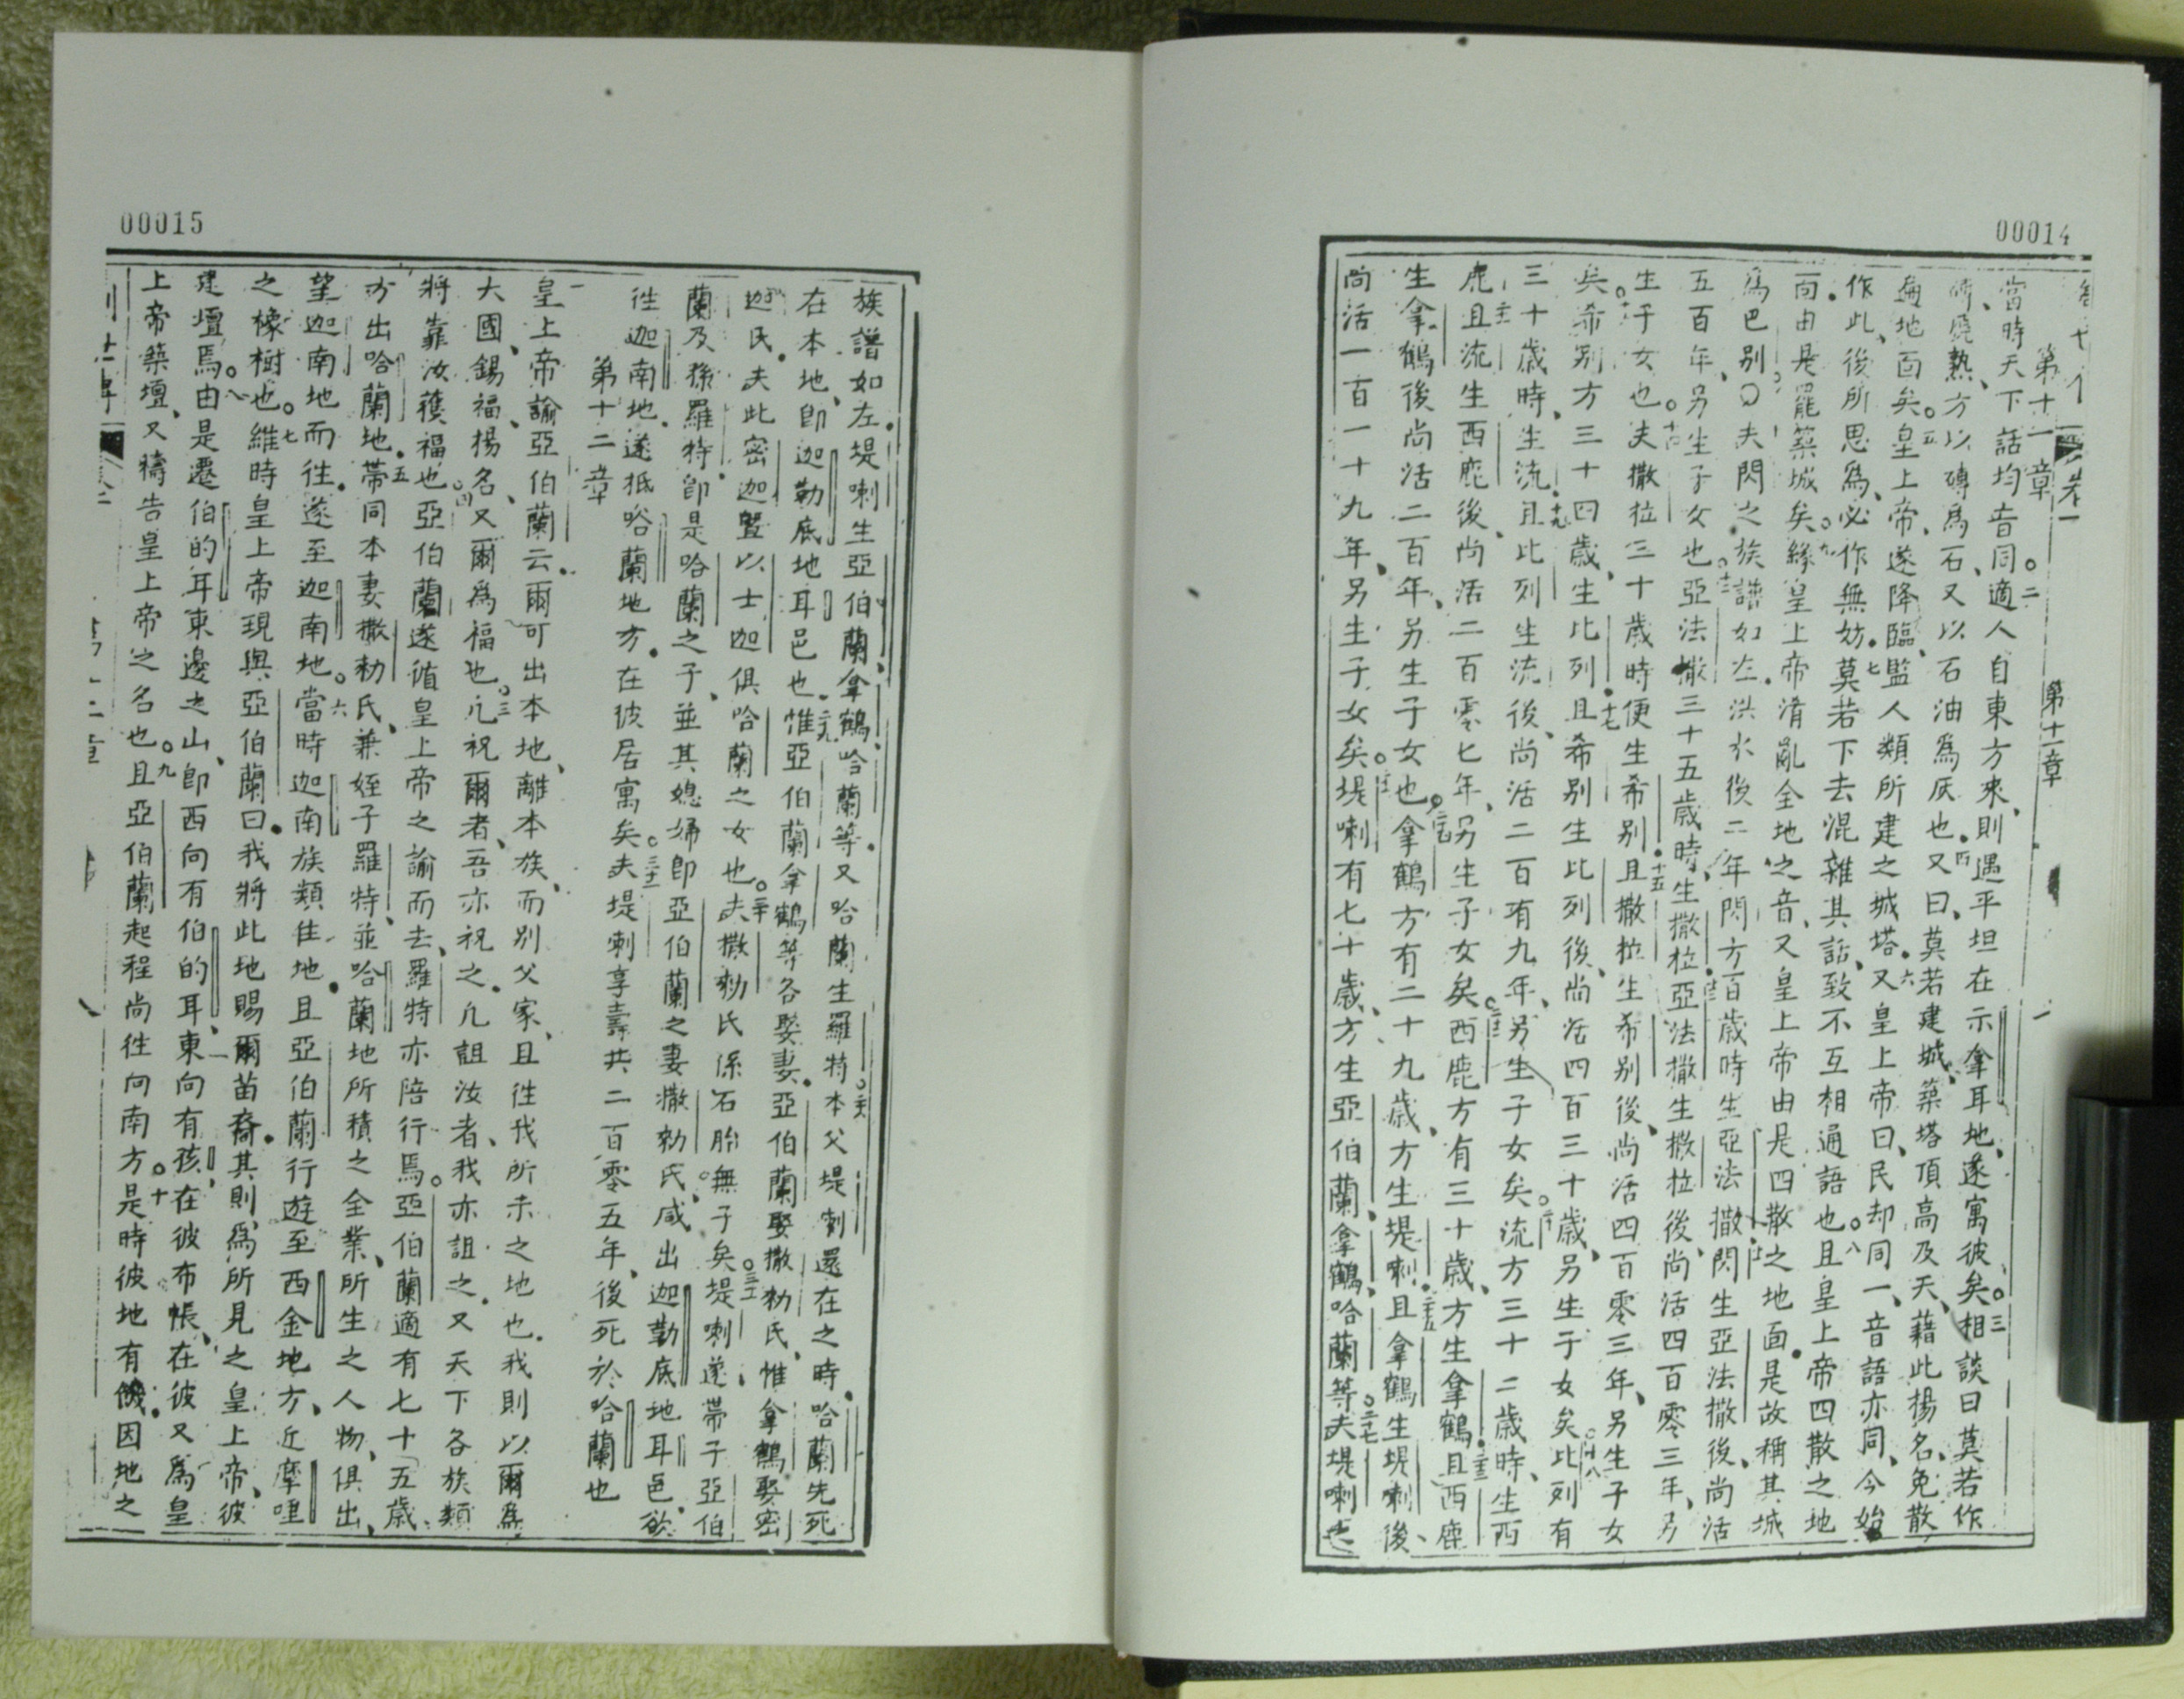 00014
卷一
第十一章
第十一章
當時天下話均音同。二適人自東方來、則遇平坦在示拿耳地、遂寓彼矣。三相談曰莫若作
磚燒熱、方以磚爲石、又以石油爲灰也。四又曰、莫若建城、築塔頂高及天、藉此揚名、免散
遍地面矣。五皇上帝、遂降臨、監人類所建之城塔。六又皇上帝曰、民却同一、音語亦同、今始
作此、後所思爲、必作無妨。七莫若下去混雜其話、致不互相通語也。八且皇上帝四散之地
面、由是罷築城矣。九緣皇上帝淆亂全地之音、又皇上帝由是四散之地面。是故稱其城
爲巴别〇夫閃之族譜如左。洪水後二年、閃方百歲時生亞法撒。十一閃生亞法撒後、尚活
五百年、另生子女也。十二亞法撒三十五歲時、生撒拉。十三亞法撒生撒拉後、尚活四百零三年、另
生子女也。十四夫撒拉三十歲時便生希别。十五且撒拉生希别後、尚活四百零三年、另生子女
矣。希别方三十四歲、生比列。十七且希别生比列後、尚活四百三十歲、另生子女矣。十八比列有
三十歲時、生流。十九且比列生流後、尚活二百有九年、另生子女矣。二十流方三十二歲時、生西
鹿。且流生西鹿後、尚活二百零七年、另生子女矣。西鹿方有三十歲、方生拿鶴。二三且西鹿
生拿鶴後尚活二百年、另生子女也。拿鶴方有二十九歲、方生堤喇。二五且拿鶴生堤喇後、
尚活一百一十九年、另生子女矣。堤喇有七十歲、方生亞伯蘭、拿鶴、哈蘭等。二七夫堤喇之
00015
族譜如左。堤喇生亞伯蘭、拿鶴、哈蘭等。又哈蘭生羅特。本父堤喇還在之時、哈蘭先死
在本地、卽迦勒底地耳邑也。二九惟亞伯蘭拿鶴等各娶妻。亞伯蘭娶撒勑氏、惟拿鶴娶密
迦民。夫此密迦曁以士迦俱哈蘭之女也。三十夫撒勑氏係石胎無子矣。三一堤喇遂帶子亞伯
蘭及孫羅特、卽是哈蘭之子、並其媳婦卽亞伯蘭之妻撒勑氏、咸出迦勒底地耳邑、欲
徃迦南地。遂抵哈蘭地方。在彼居寓矣。三二夫堤喇享壽共二百零五年、後死於哈蘭也
第十二章
皇上帝諭亞伯蘭云。爾可出本地、離本族、而别父家、且徃我所示之地也。我則以爾爲
大國、錫福、揚名、又爾爲福也。三凡祝爾者、吾亦祝之。凡詛汝者、我亦詛之。又天下各族類
將靠汝獲福也。四亞伯蘭遂循皇上帝之諭而去、羅特亦陪行焉。亞伯蘭適有七十五歲、
方出哈蘭地。五帶同本妻撒勑氏、兼姪子羅特、並哈蘭地所積之全業、所生之人物、俱出、
望迦南地而徃。遂至迦南地。六當時迦南族類住地。且亞伯蘭行遊至西金地方、近摩哩
之橡樹也。七維時皇上帝現與亞伯蘭曰。我將此地賜爾苗裔。其則爲所見之皇上帝、彼
建壇焉。八由是遷伯的耳東邊之山、卽西向有伯的耳、東向有孩、在彼布帳、在彼又爲皇
上帝築壇、又禱告皇上帝之名也。九且亞伯蘭起程尚徃向南方。十是時彼地有饑。因地之